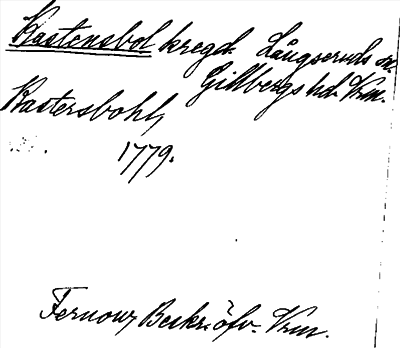 Kastensbol kregd. Långseruds sn.
Gillbergs hd. Vrm.
Kastersbohl,
1779.
Fernow, Beskr. öfv. Vrm.